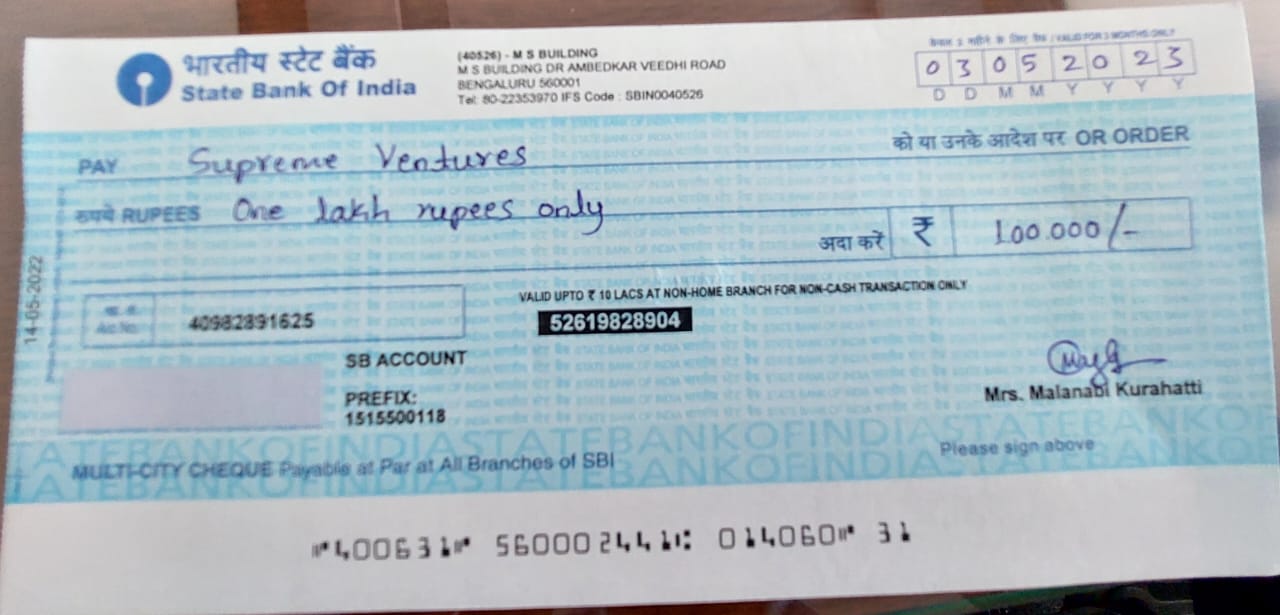 भारतीय स्टेट बैंक
State Bank Of India
(40526) - M S BUILDING
M S BUILDING DR AMBEDKAR VEEDHI ROAD
BENGALURU 560001
Tel: 80-22353970 IFS Code : SBIN0040526
केवल 3 महीने के लिए वैध / VALID FOR 3 MONTHS ONLY
0 3 0 5 2 0 2 3
D D M M Y Y Y Y
PAY Supreme Ventures को या उनके आदेश पर OR ORDER
रुपये RUPEES One lakh rupees only
अदा करें ₹ 100.000/-
14-05-2022
VALID UPTO ₹ 10 LACS AT NON-HOME BRANCH FOR NON-CASH TRANSACTION ONLY
A/c No. 40982891625
52619828904
SB ACCOUNT
PREFIX:
1515500118
Mrs. Malanabi Kurahatti
Please sign above
STATE BANK OF INDIA STATE BANK OF INDIA
MULTI-CITY CHEQUE Payable at Par at All Branches of SBI
⑈400631⑈ 560002441⑆ 014060⑈ 31